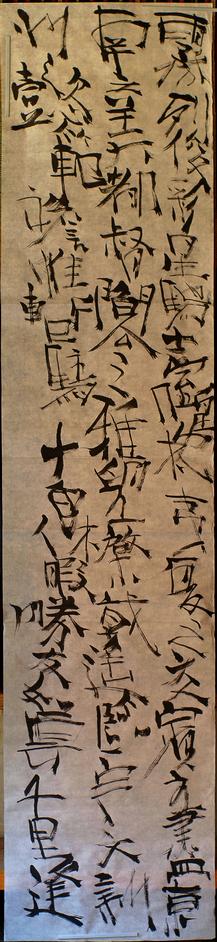 霧列俊彩星馳臺隍枕夷夏之交賓主盡東
南之美都督閻公之雅望棨戟遙臨宇文新
州之懿範襜帷暫駐十旬休暇勝友如雲千里逢